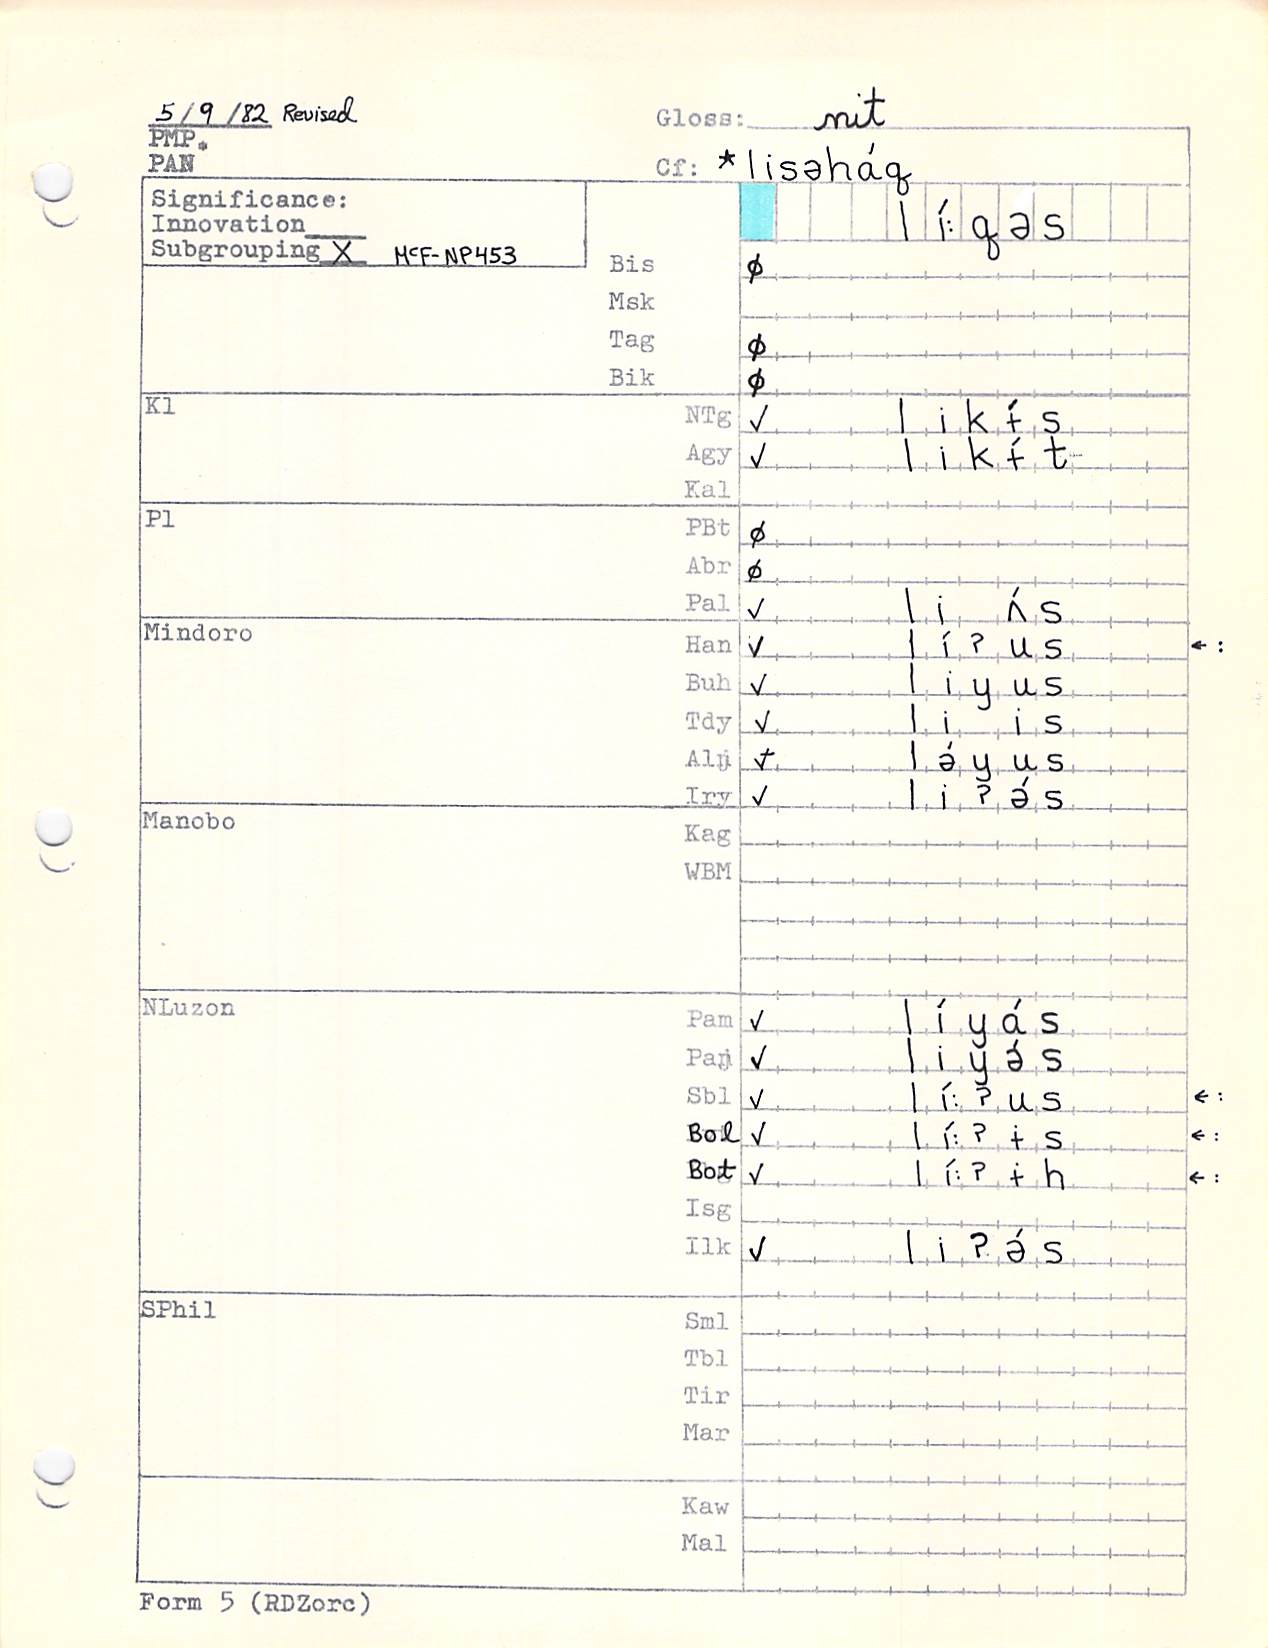 5/9/82 Revised
Gloss: nit
PMP.
PAN
Cf: *lisəháq
Significance:
Innovation
Subgrouping X McF-NP453
lí:qəs
Bis ø
Msk
Tag ø
Bik ø
Kl
NTg ✓ likɨ́s
Agy ✓ likɨ́t
Kal
Pl
PBt ø
Abr ø
Pal ✓ li ʌ́s
Mindoro
Han ✓ líʔus ←:
Buh ✓ liyus
Tdy ✓ li is
Alŋ ✓ ləyus
Iry ✓ liʔə́s
Manobo
Kag
WBM
NLuzon
Pam ✓ líyás
Paŋ ✓ liyə́s
Sbl ✓ lí:ʔus ←:
Bol ✓ lí:ʔɨs ←:
Bot ✓ lí:ʔɨh ←:
Isg
Ilk ✓ liʔə́s
SPhil
Sml
Tbl
Tir
Mar
Kaw
Mal
Form 5 (RDZorc)